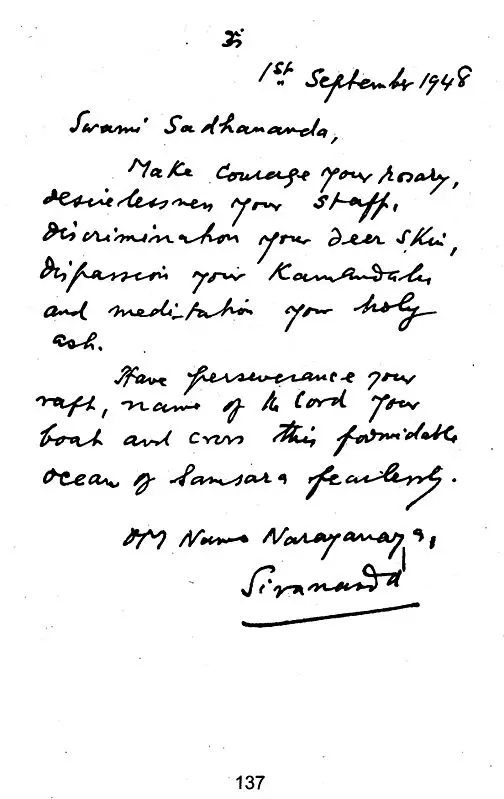 ॐ
1st September 1948
Swami Sadhananda,
Make Courage your rosary,
desirelessness your staff,
discrimination your deer skin,
dispassion your Kamandalu
and meditation your holy
ash.
Have perseverance your
raft, name of the Lord your
boat and cross this formidable
ocean of Samsara fearlessly.
OM Namo Narayanaya,
Sivananda
137